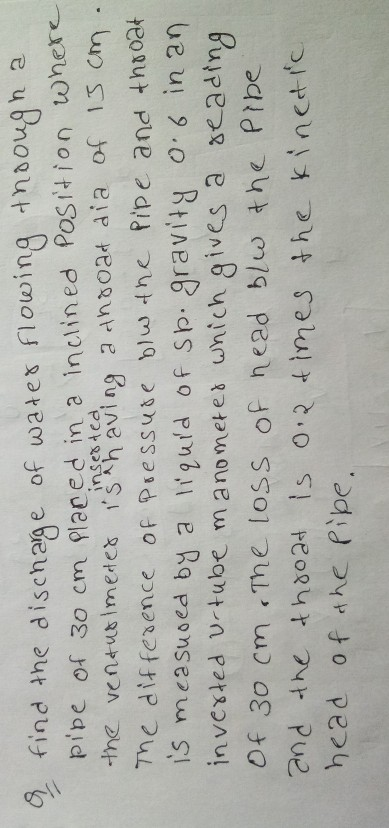 Q find the discharge of water flowing through a
pipe of 30 cm placed in a inclined position where
inserted
the venturimeter is having a throat dia of 15 cm.
The difference of pressure b/w the pipe and throat
is measured by a liquid of sp. gravity 0.6 in an
inverted u-tube manometer which gives a reading
of 30 cm. The loss of head b/w the pipe
and the throat is 0.2 times the kinetic
head of the pipe.